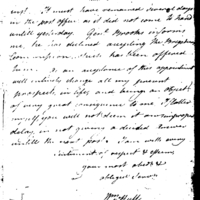 inst. It must have remained several days
in the post office as it did not come to hand
until yesterday. Genl. Brooks informs
me, he has declined accepting the Brigadier
Commission, which has been offered
him. As an acceptance of the appointment
will entirely change all my present
prospects in life, and being an object
of very great consequence to me I flatter
myself you will not deem it an improper
delay, in not giving a decided answer
untill the next post. I am with every
sentiment of respect & esteem
your most obedt. &
obliged Servt.
Wm. Hull